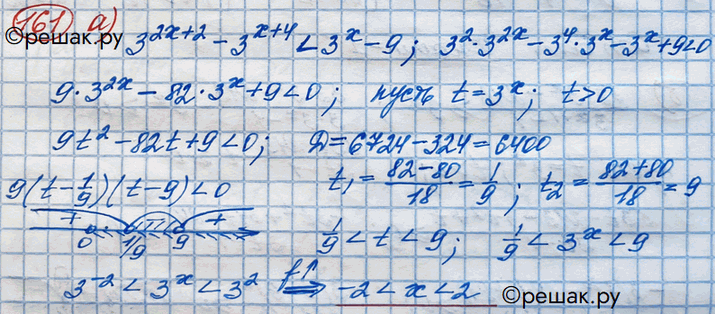 161 а)
©решак.ру
3^{2x+2} - 3^{x+4} < 3^x - 9; 3^2·3^{2x} - 3^4·3^x - 3^x + 9 < 0
9·3^{2x} - 82·3^x + 9 < 0; пусть t = 3^x; t > 0
9t^2 - 82t + 9 < 0; D = 6724 - 324 = 6400
9(t - 1/9)(t - 9) < 0 t_1 = (82-80)/18 = 1/9; t_2 = (82+80)/18 = 9
+ - +
0 1/9 9 1/9 < t < 9; 1/9 < 3^x < 9
3^{-2} < 3^x < 3^2 f↑ ⇒ -2 < x < 2 ©решак.ру